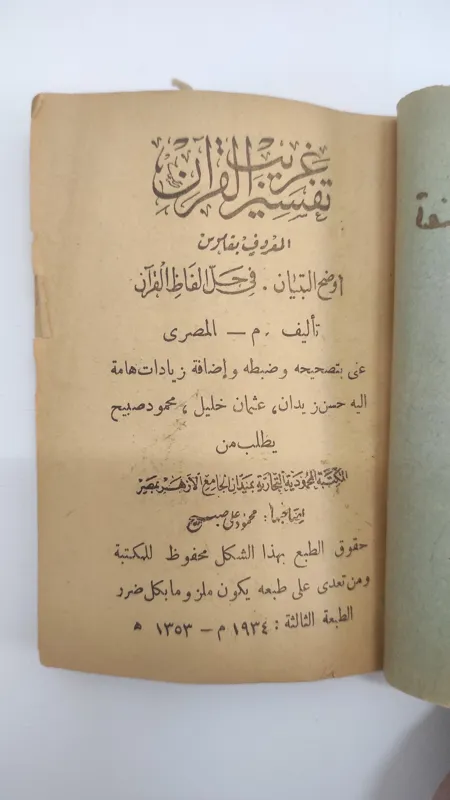 تفسير غريب القرآن
المعروف بقاموس
أوضح التبيان . في حل ألفاظ القرآن
تأليف . م – المصرى
عنى بتصحيحه وضبطه وإضافة زيادات هامة
اليه حسن زيدان، عثمان خليل، محمود صبيح
يطلب من
المكتبة المحمودية التجارية بميدان الجامع الأزهر بمصر
لصاحبها : محمود على صبيح
حقوق الطبع بهذا الشكل محفوظ للمكتبة
ومن تعدى على طبعه يكون ملزوما بكل ضرر
الطبعة الثالثة : ١٩٣٤ م – ١٣٥٣ ه